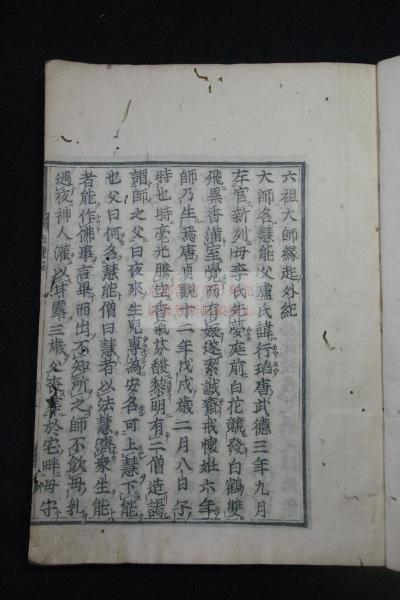 六祖大師緣起外紀
大師名慧能父盧氏諱行瑫唐武德三年九月
左官新州母李氏先夢庭前白花競發白鶴雙
飛異香滿室覺而有娠遂潔誠齋戒懷姙六年
師乃生焉唐貞觀十二年戊戌歲二月八日子
時也時毫光騰空香氣芬馥黎明有二僧造謁
謂師之父曰夜來生兒專為安名可上慧下能
也父曰何名慧能僧曰慧者以法慧濟衆生能
者能作佛事言畢而出不知所之師不飲母乳
遇夜神人灌以甘露三歲父喪葬於宅畔母守